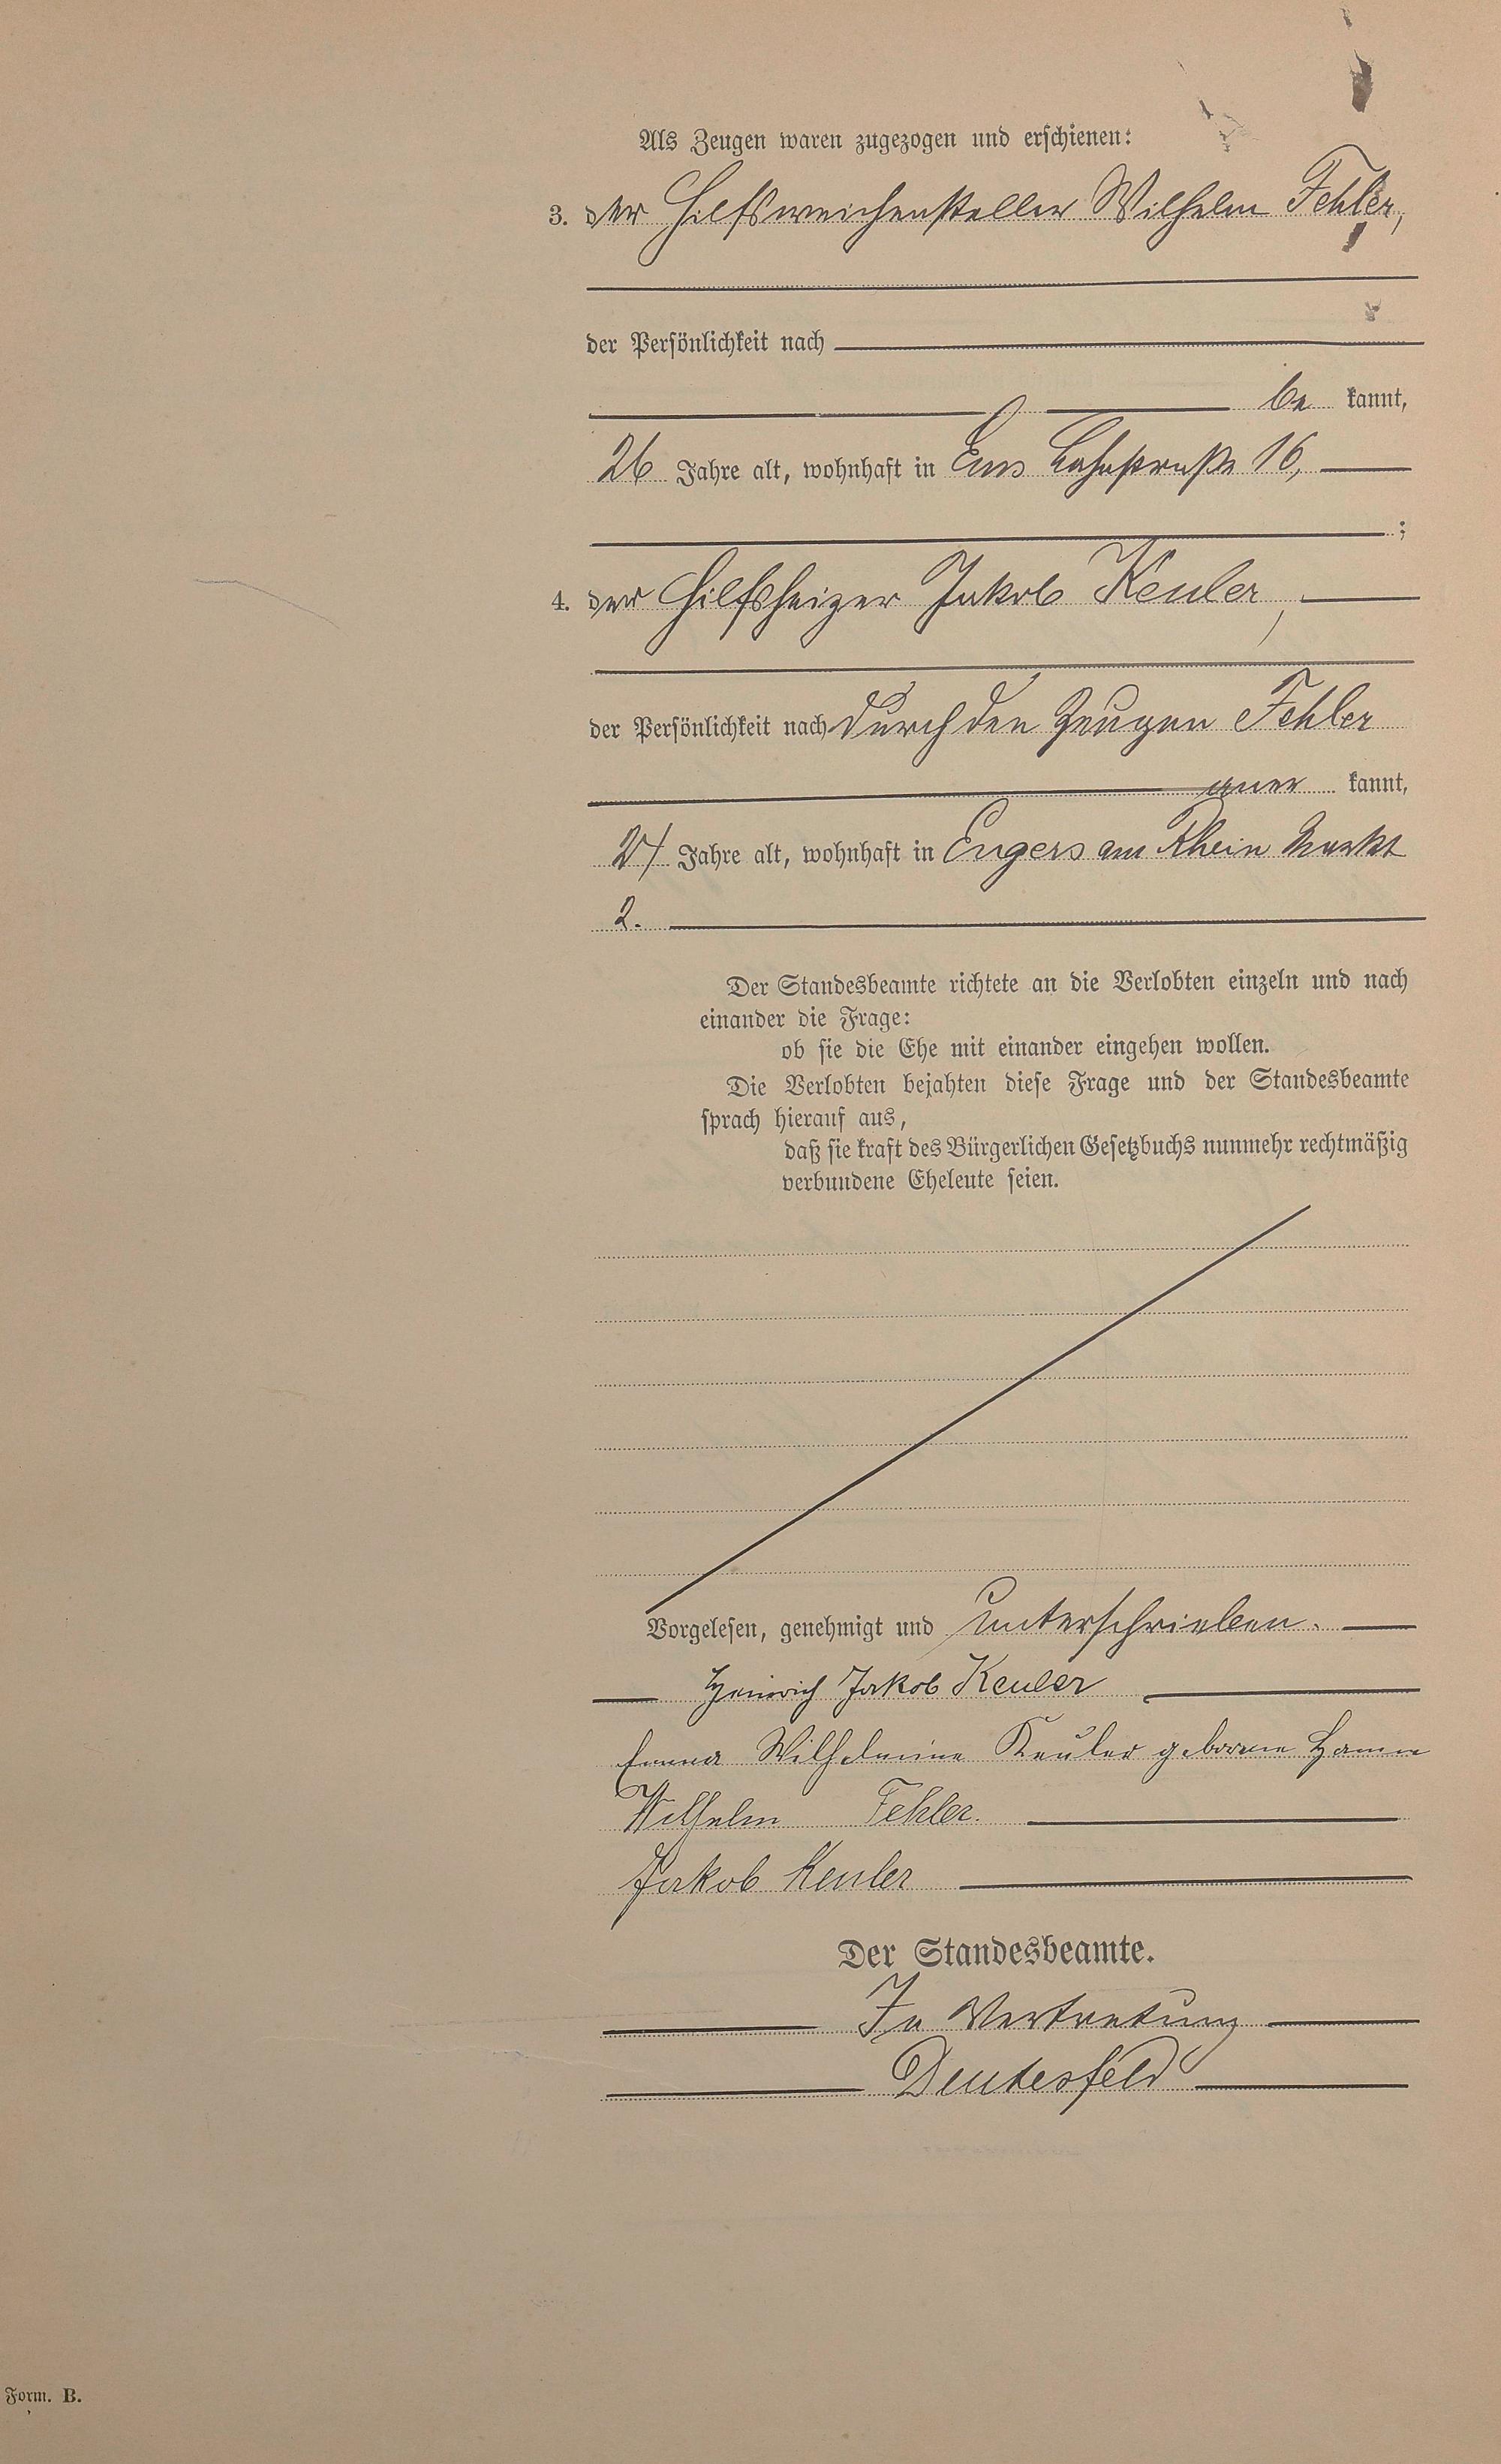 Als Zeugen waren zugezogen und erschienen:
3. der Hilfsweichensteller Wilhelm Fehler,
der Persönlichkeit nach
be kannt,
26 Jahre alt, wohnhaft in Ems Lahnstraße 16,
;
4. der Hilfsheizer Jakob Keuler,
der Persönlichkeit nach durch den Zeugen Fehler
aner kannt,
Jahre alt, wohnhaft in Engers am Rhein Markt
2.
Der Standesbeamte richtete an die Verlobten einzeln und nach
einander die Frage:
ob sie die Ehe mit einander eingehen wollen.
Die Verlobten bejahten diese Frage und der Standesbeamte
sprach hierauf aus,
daß sie kraft des Bürgerlichen Gesetzbuchs nunmehr rechtmäßig
verbundene Eheleute seien.
Vorgelesen, genehmigt und unterschrieben.
Heinrich Jakob Keuler
Emma Wilhelmine Keuler geborene Hamm
Wilhelm Fehler.
Jakob Keuler
Der Standesbeamte.
In Vertretung
Deutesfeld
Form. B.